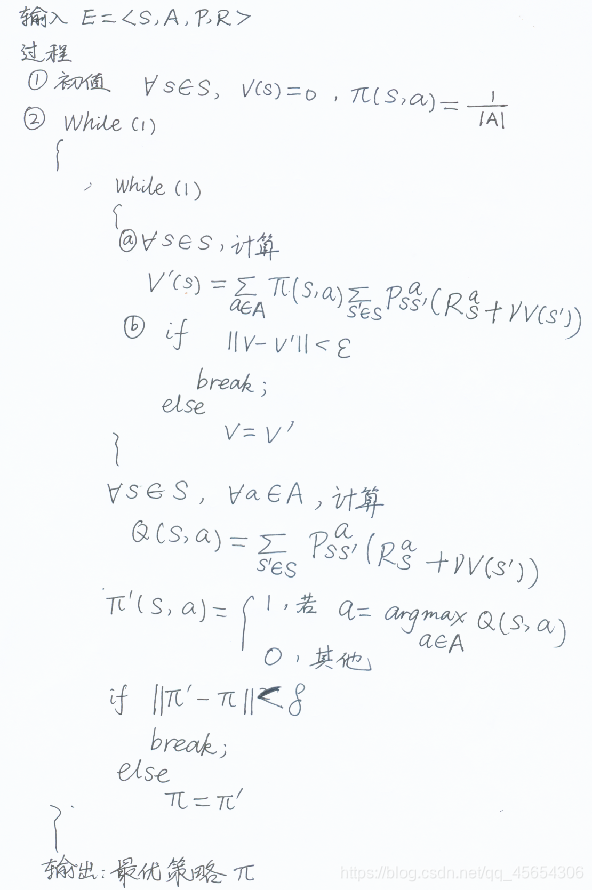 输入 E=<S,A,P,R>
过程
① 初值 ∀s∈S, V(s)=0, π(s,a)=1/|A|
② While (1)
{
while (1)
{
ⓐ ∀s∈S, 计算
V'(s) = Σ_{a∈A} π(s,a) Σ_{s'∈S} P^a_{ss'} (R^a_s + γV(s'))
ⓑ if ||V-V'|| < ε
break;
else
V = V'
}
∀s∈S, ∀a∈A, 计算
Q(s,a) = Σ_{s'∈S} P^a_{ss'} (R^a_s + γV(s'))
π'(s,a) = { 1, 若 a = argmax_{a∈A} Q(s,a)
0, 其他
if ||π'-π|| < δ
break;
else
π = π'
}
输出: 最优策略 π
https://blog.csdn.net/qq_45654306